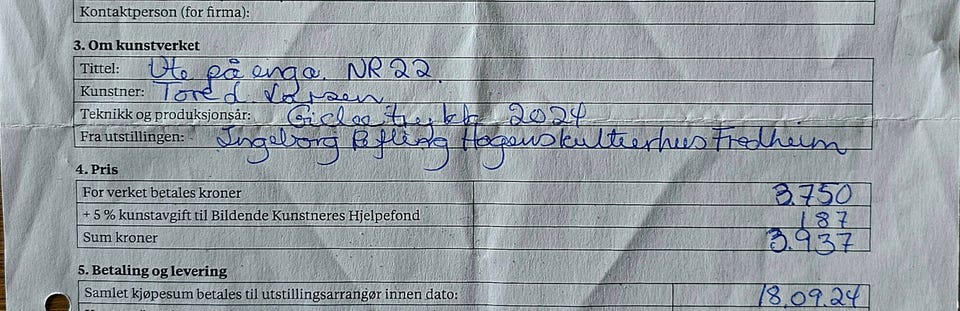 Kontaktperson (for firma):
3. Om kunstverket
Tittel: Ute på enga. NR 22.
Kunstner: Tore d. Larsen
Teknikk og produksjonsår: Giclee trykk 2024
Fra utstillingen: Ingeborg Refling Hagens kulturhus Fredheim
4. Pris
For verket betales kroner 3.750
+ 5 % kunstavgift til Bildende Kunstneres Hjelpefond 187
Sum kroner 3.937
5. Betaling og levering
Samlet kjøpesum betales til utstillingsarrangør innen dato: 18.09.24